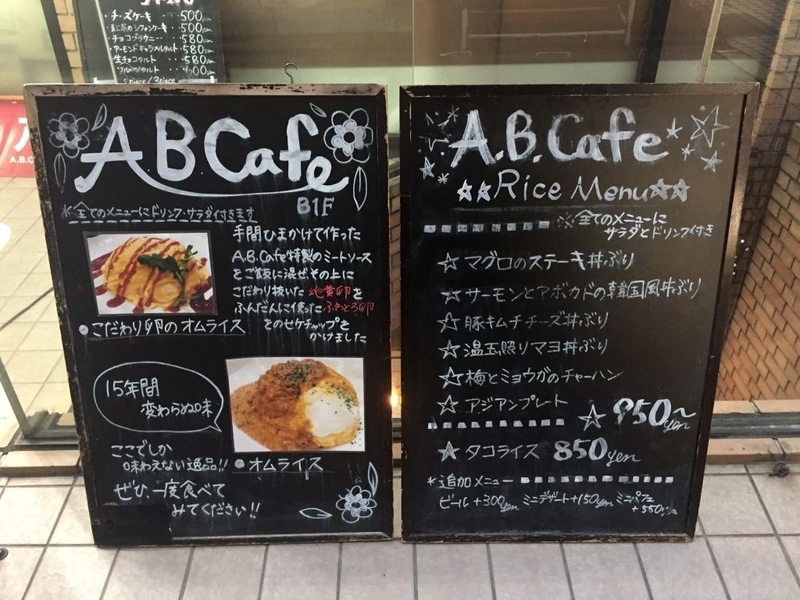 ・チーズケーキ・・500
・紅茶のシフォンケーキ・・500
・チョコブラウニー・・580
・アーモンドキャラメルタルト・580
・生チョコタルト・・580
A.B.C
A.B Cafe
B1F
※全てのメニューにドリンク・サラダ付きます
手間ひまかけて作った
A.B.Cafe特製のミートソース
をご飯に混ぜ、その上に
こだわり抜いた地黄卵を
ふんだんに使ったふわとろ卵
とのせケチャップを
かけました
こだわり卵のオムライス
15年間
変わらぬ味
ここでしか
味わえない逸品!!
オムライス
ぜひ、一度食べて
みてください!!
A.B.Cafe
☆☆Rice Menu☆☆
※全てのメニューに
サラダとドリンク付き
☆マグロのステーキ丼ぶり
☆サーモンとアボカドの韓国風丼ぶり
☆豚キムチチーズ丼ぶり
☆温玉照りマヨ丼ぶり
☆梅とミョウガのチャーハン
☆アジアンプレート
☆950〜yen
☆タコライス 850yen
*追加メニュー
ビール+300yen ミニデザート+150yen ミニパフェ
+550yen